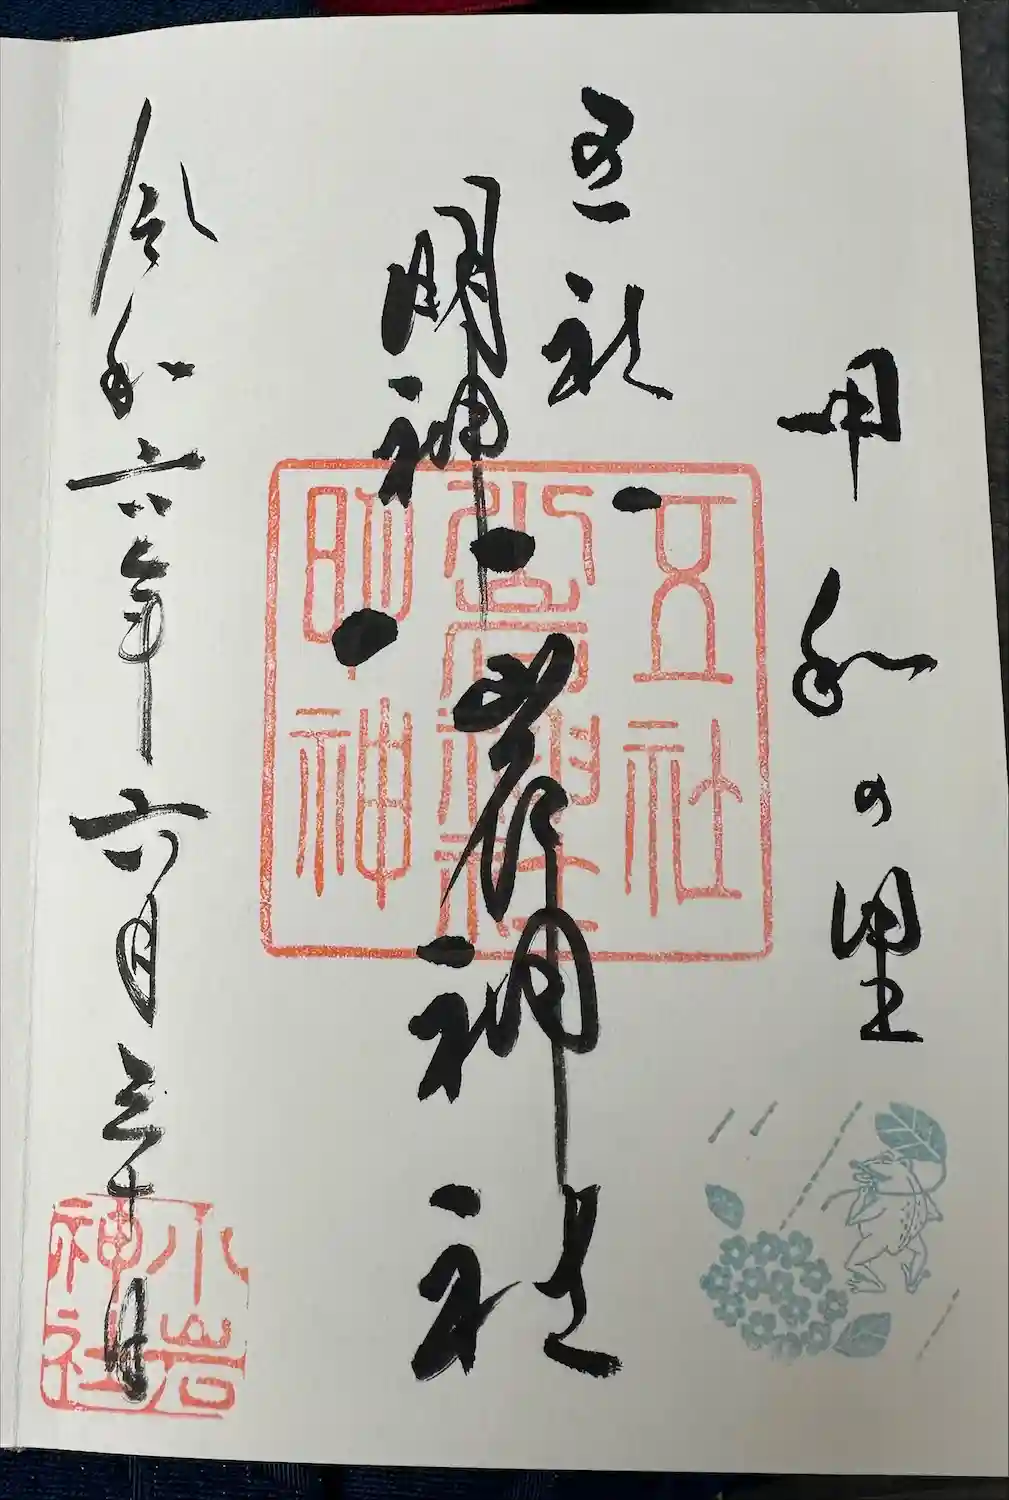 甲和の里
五社
明神
小岩神社
五社
明神
令和六年六月三十日
小岩
神社